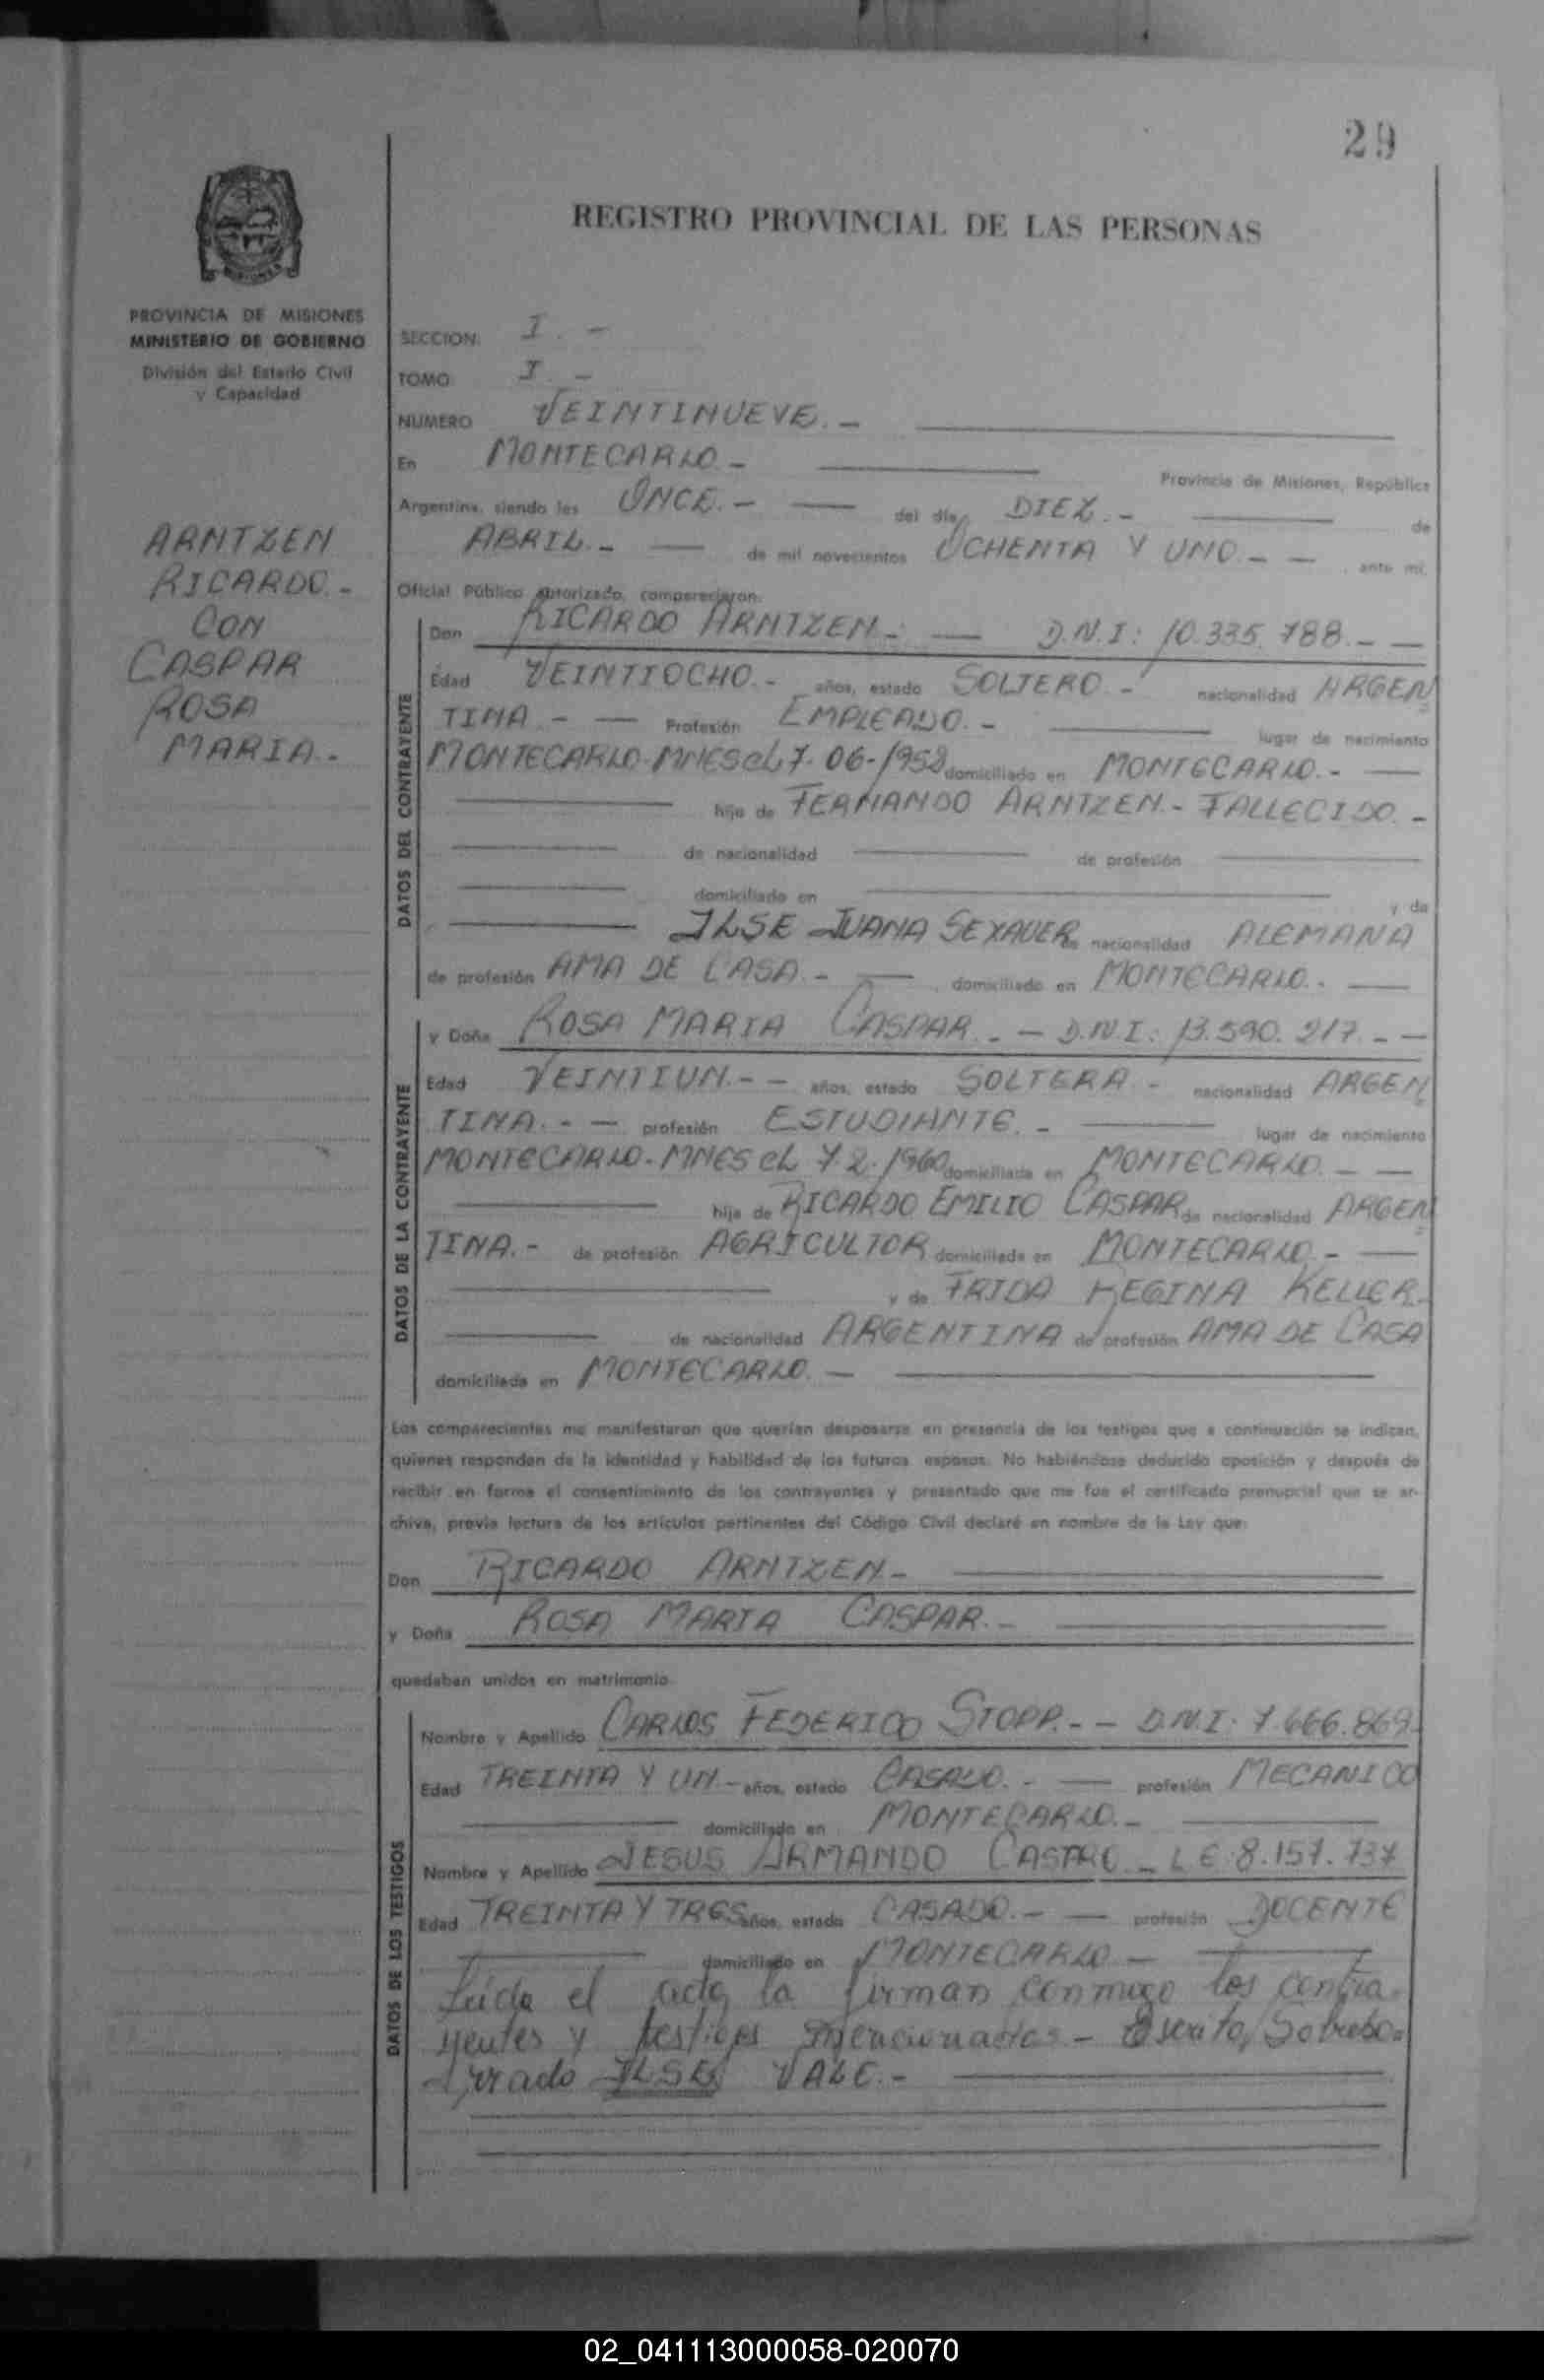 29
REGISTRO PROVINCIAL DE LAS PERSONAS
PROVINCIA DE MISIONES
MINISTERIO DE GOBIERNO
División del Estado Civil
y Capacidad
ARNTZEN
RICARDO.-
CON
CASPAR
ROSA
MARIA.-
SECCION: I.-
TOMO I.-
NUMERO VEINTINUEVE.-
En MONTECARLO.- Provincia de Misiones, República
Argentina, siendo las ONCE.- del día DIEZ.- de
ABRIL.- de mil novecientos OCHENTA Y UNO.- ante mí,
Oficial Público autorizado, comparecieron:
Don RICARDO ARNTZEN.- D.N.I: 10.335.788.-
DATOS DEL CONTRAYENTE
Edad VEINTIOCHO.- años, estado SOLTERO.- nacionalidad ARGEN
TINA.- Profesión EMPLEADO.- lugar de nacimiento
MONTECARLO-MNES el 7-06-1952 domiciliado en MONTECARLO.-
hijo de FERNANDO ARNTZEN.- FALLECIDO.-
de nacionalidad de profesión
domiciliado en y de
ILSE JUANA SEXAUER de nacionalidad ALEMANA
de profesión AMA DE CASA.- domiciliada en MONTECARLO.
y Doña ROSA MARIA CASPAR.- D.N.I: 13.590.217.-
DATOS DE LA CONTRAYENTE
Edad VEINTIUN.- años, estado SOLTERA.- nacionalidad ARGEN
TINA.- profesión ESTUDIANTE.- lugar de nacimiento
MONTECARLO-MNES el 7.2.1960 domiciliada en MONTECARLO.-
hija de RICARDO EMILIO CASPAR de nacionalidad ARGEN
TINA.- de profesión AGRICULTOR domiciliado en MONTECARLO.-
y de FRIDA REGINA KELLER.
de nacionalidad ARGENTINA de profesión AMA DE CASA
domiciliada en MONTECARLO.-
Los comparecientes me manifestaron que querían desposarse en presencia de los testigos que a continuación se indican,
quienes responden de la identidad y habilidad de los futuros esposos. No habiéndose deducido oposición y después de
recibir en forma el consentimiento de los contrayentes y presentado que me fue el certificado prenupcial que se ar-
chiva, previa lectura de los artículos pertinentes del Código Civil declaré en nombre de la Ley que:
Don RICARDO ARNTZEN.-
y Doña ROSA MARIA CASPAR.-
quedaban unidos en matrimonio.
DATOS DE LOS TESTIGOS
Nombre y Apellido CARLOS FEDERICO STOPP.- D.N.I: 7.666.869.
Edad TREINTA Y UN.- años, estado CASADO.- profesión MECANICO
domiciliado en MONTECARLO.-
Nombre y Apellido JESUS ARMANDO CASTRO - L E 8.157.737
Edad TREINTA Y TRES años, estado CASADO.- profesión DOCENTE
domiciliado en MONTECARLO.-
Leída el acta la firman conmigo los contra-
yentes y testigos mencionados.- Escrito, Sobrebo-
rrado ILSE VALE.-
02_041113000058-020070